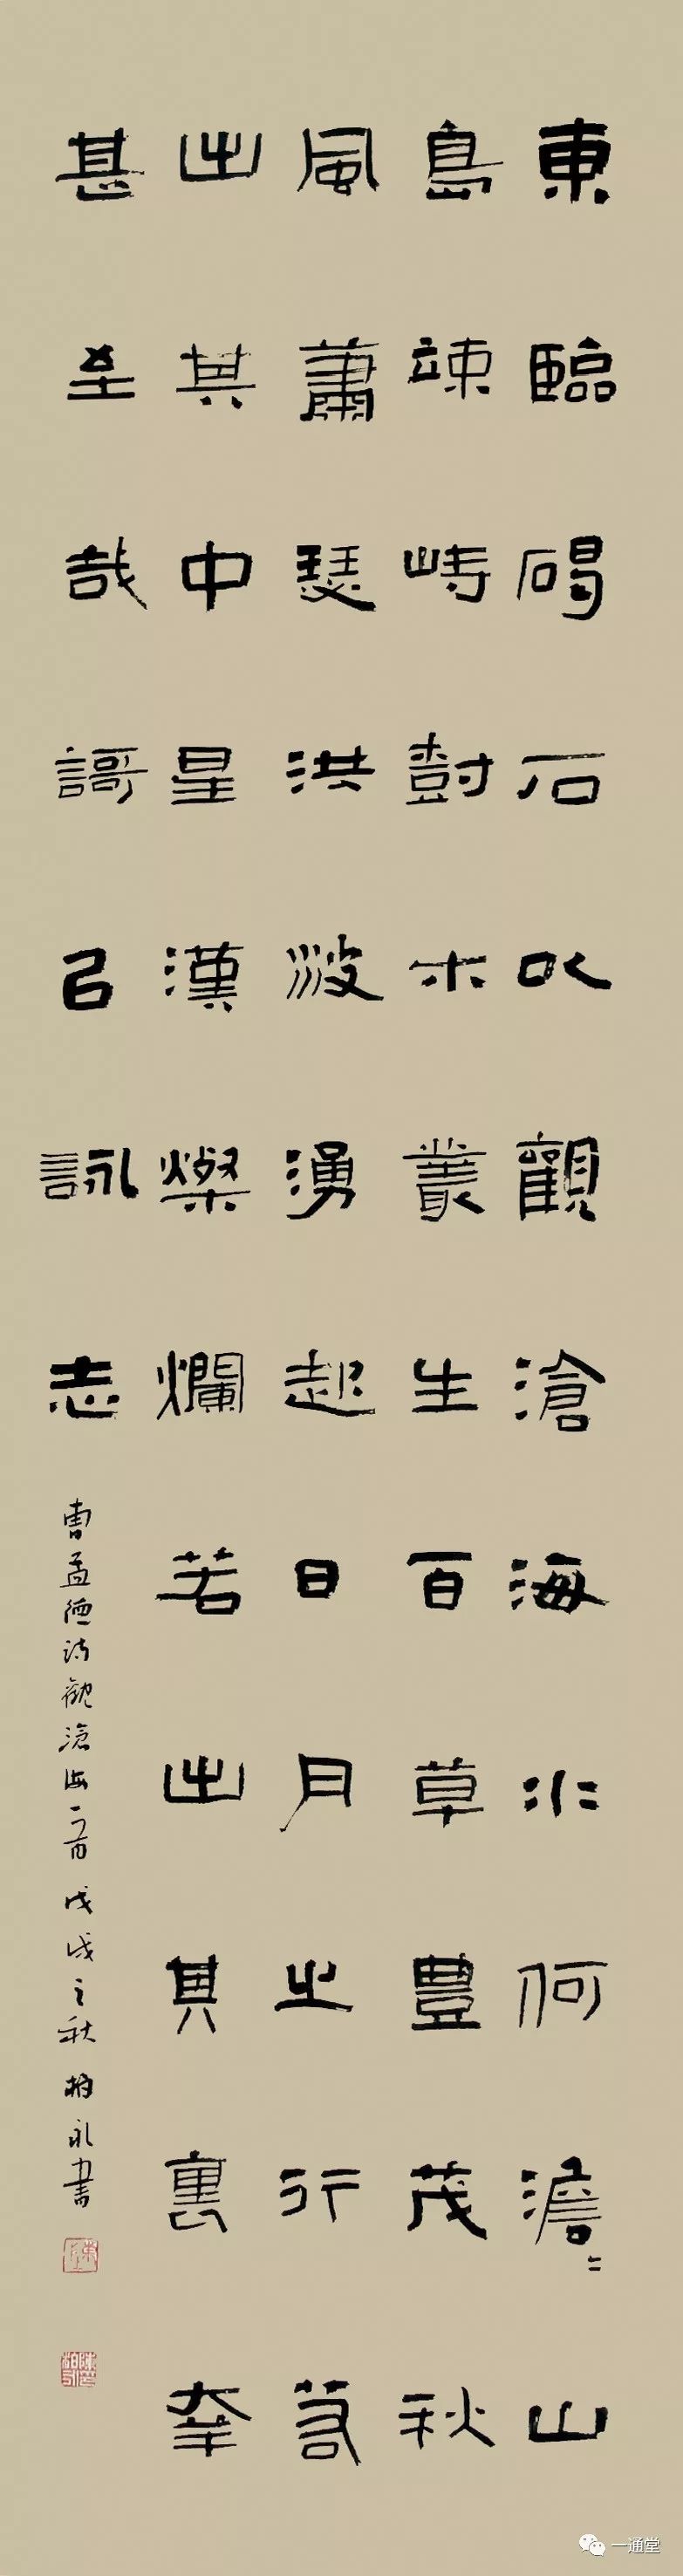 東臨碣石以觀滄海水何澹〻山
島竦峙樹木叢生百草豊茂秋
風蕭瑟洪波湧起日月之行若
出其中星漢燦爛若出其裏幸
甚至哉謌㠯詠志
曹孟德詩觀滄海一首 戊戌之秋 柏永書
一通堂